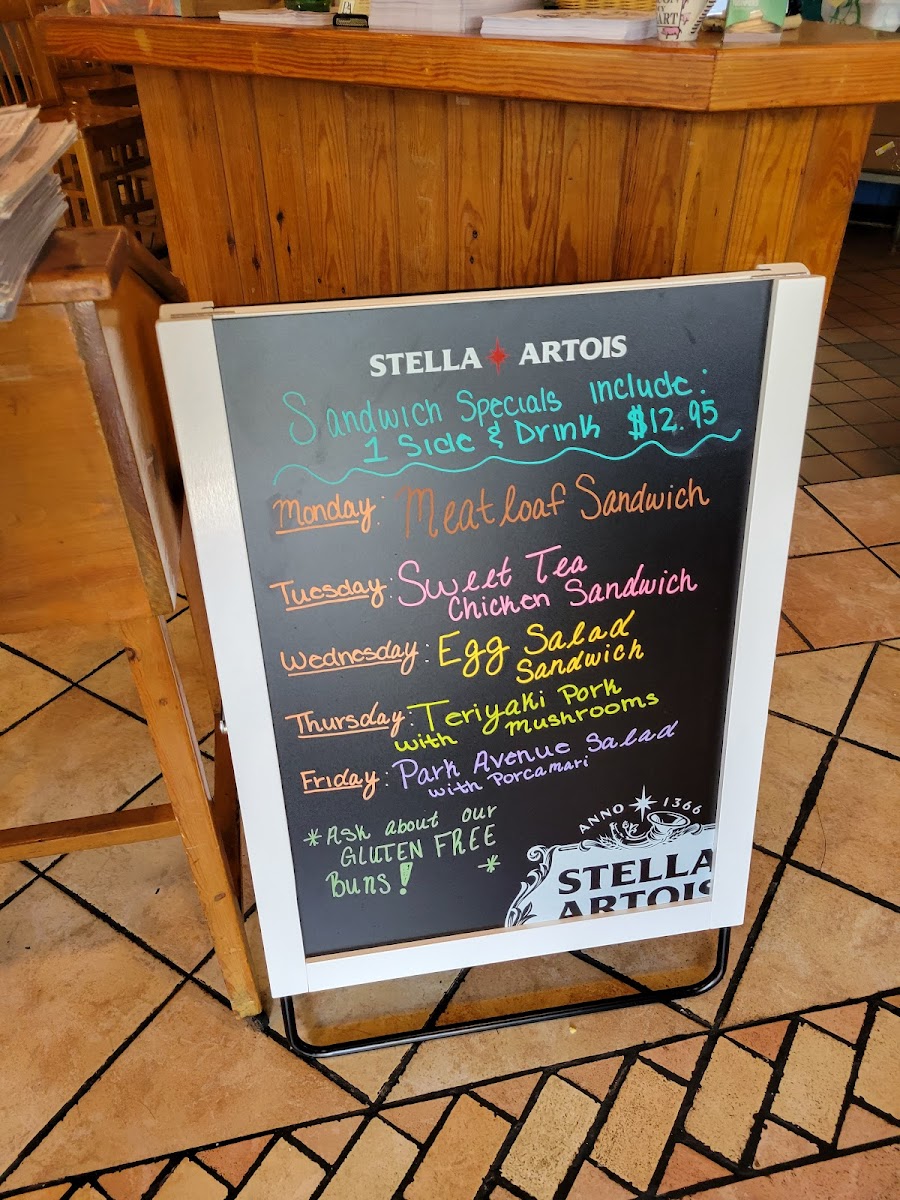 STELLA ARTOIS
Sandwich Specials include:
1 Side & Drink $12.95
Monday: Meatloaf Sandwich
Tuesday: Sweet Tea
Chicken Sandwich
Wednesday: Egg Salad
Sandwich
Thursday: Teriyaki Pork
with Mushrooms
Friday: Park Avenue Salad
with Porcamari
*Ask about our
GLUTEN FREE
Buns! *
ANNO 1366
STELLA
ARTOIS